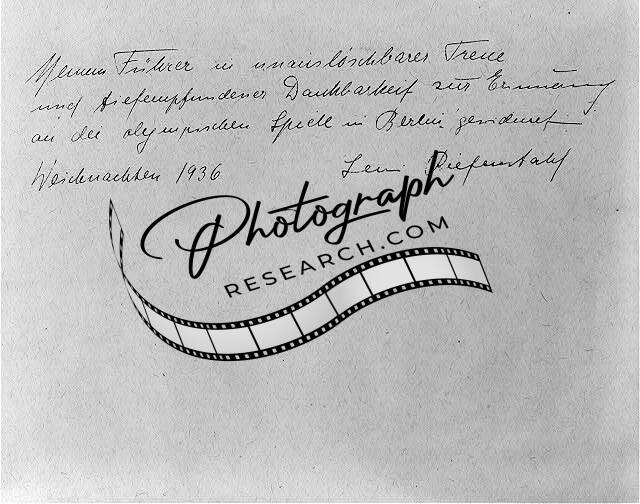 Meinem Führer in unauslöschbarer Treue
und tiefempfundener Dankbarkeit zur Erinnerung
an die olympischen Spiele in Berlin gewidmet
Weihnachten 1936 Leni Riefenstahl
Photograph
RESEARCH.COM